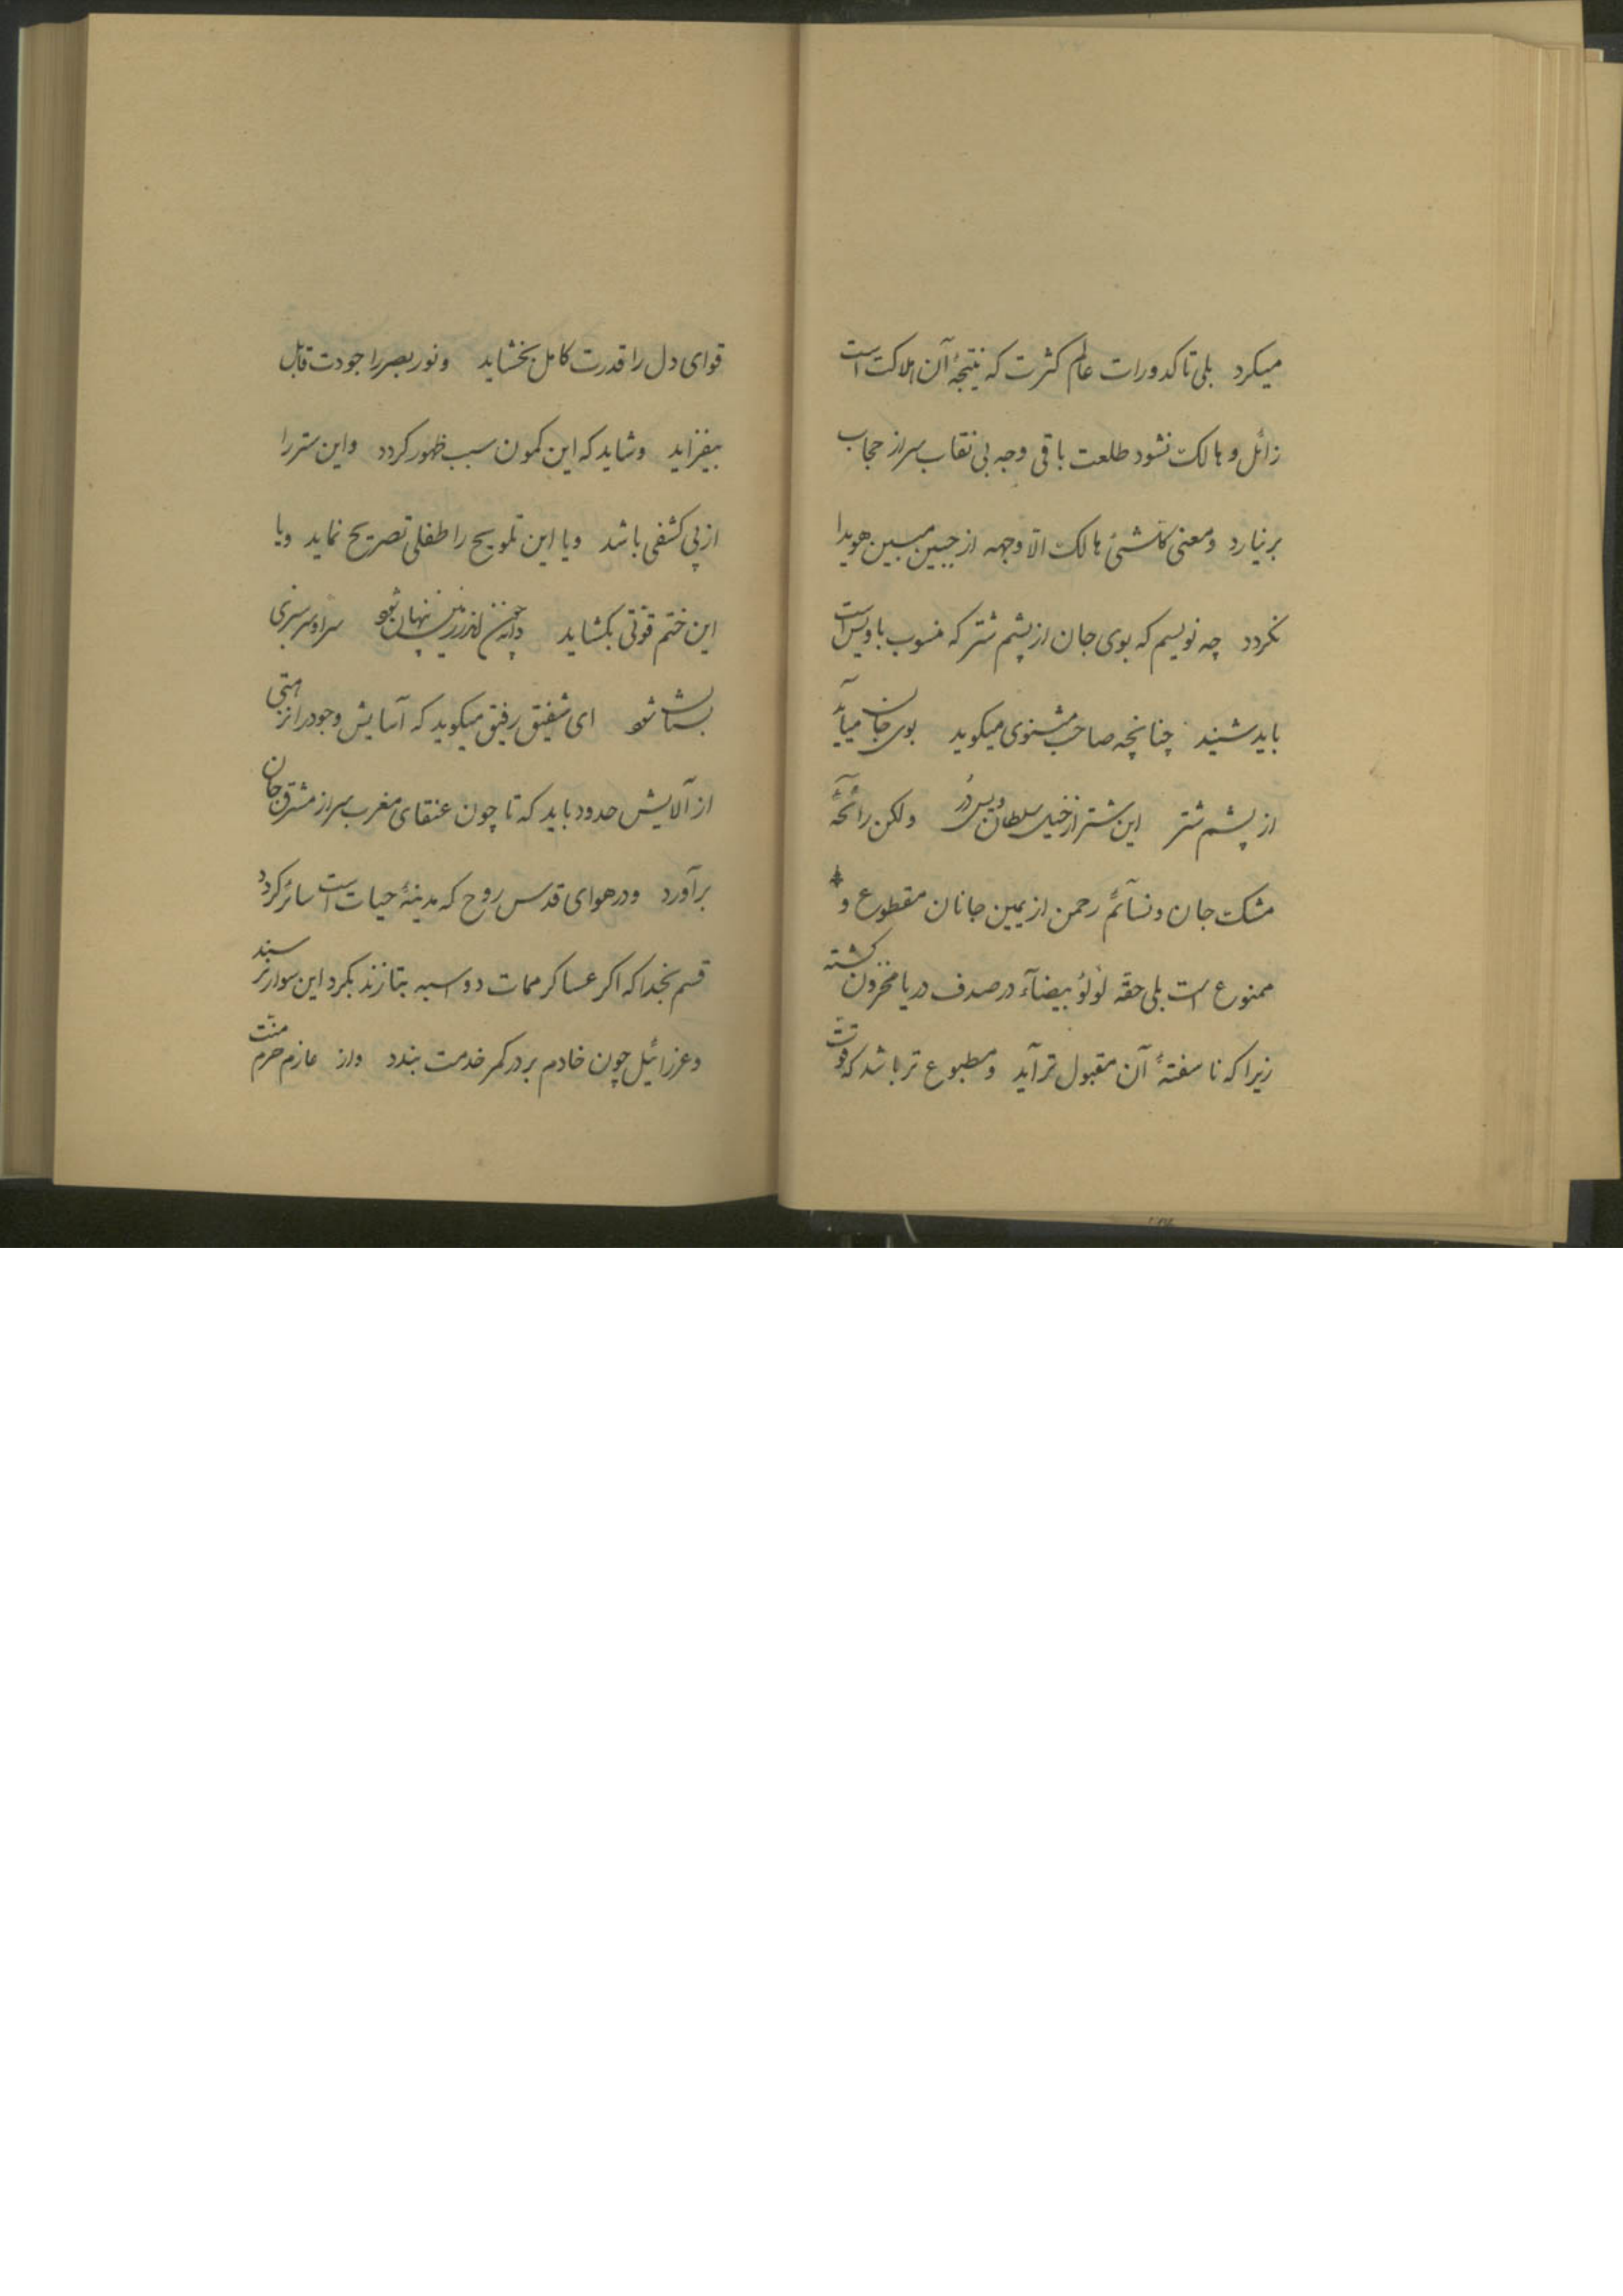 میکرد بلی تا کدورات عالم کثرت که نتیجهٔ آن هلاکت است
زائل و هالک نشود طلعت باقی وجه بی نقاب سر از حجاب
برنیارد و معنی کلّشیٔ هالک الّا وجهه از جبین مبین هویدا
نکردد چه نویسم که بوی جان از پشم شتر که منسوب باویس است
باید شنید چنانچه صاحب مثنوی میکوید بوی جان میآید
از پشم شتر این شتر از خیل سلطان ویس در ولکن رائحهٔ
مشک جان و نسآئم رحمن از یمین جانان مقطوع و
ممنوع است بلی حقه لؤلؤ بیضآء در صدف دریا مخزون کشته
زیرا که ناسفتهٔ آن مقبول تر آید و مطبوع تر باشد که قوّت
قوای دل را قدرت کامل بخشاید و نور بصر را جودت قابل
بیفزاید و شاید که این کمون سبب ظهور کردد و این ستر را
از پی کشفی باشد و یا این تلویح را طفلی تصریح نماید و یا
این ختم قوّتی بکشاید دانه چون اندر زمین پنهان شود سر او سرسبزی
بستان شود ای شفیق رفیق میکوید که آسایش وجود را نزهتی
از آلایش حدود باید که تا چون عنقای مغرب سر از مشرق جان
برآورد و در هوای قدس روح که مدینهٔ حیات است سائر کردد
قسم بخدا که اکر عساکر ممات دو اسبه بتازند بکرد این سوار نرسند
و عزرائیل چون خادم بر در کمر خدمت بندد و از عازم حرم منّت